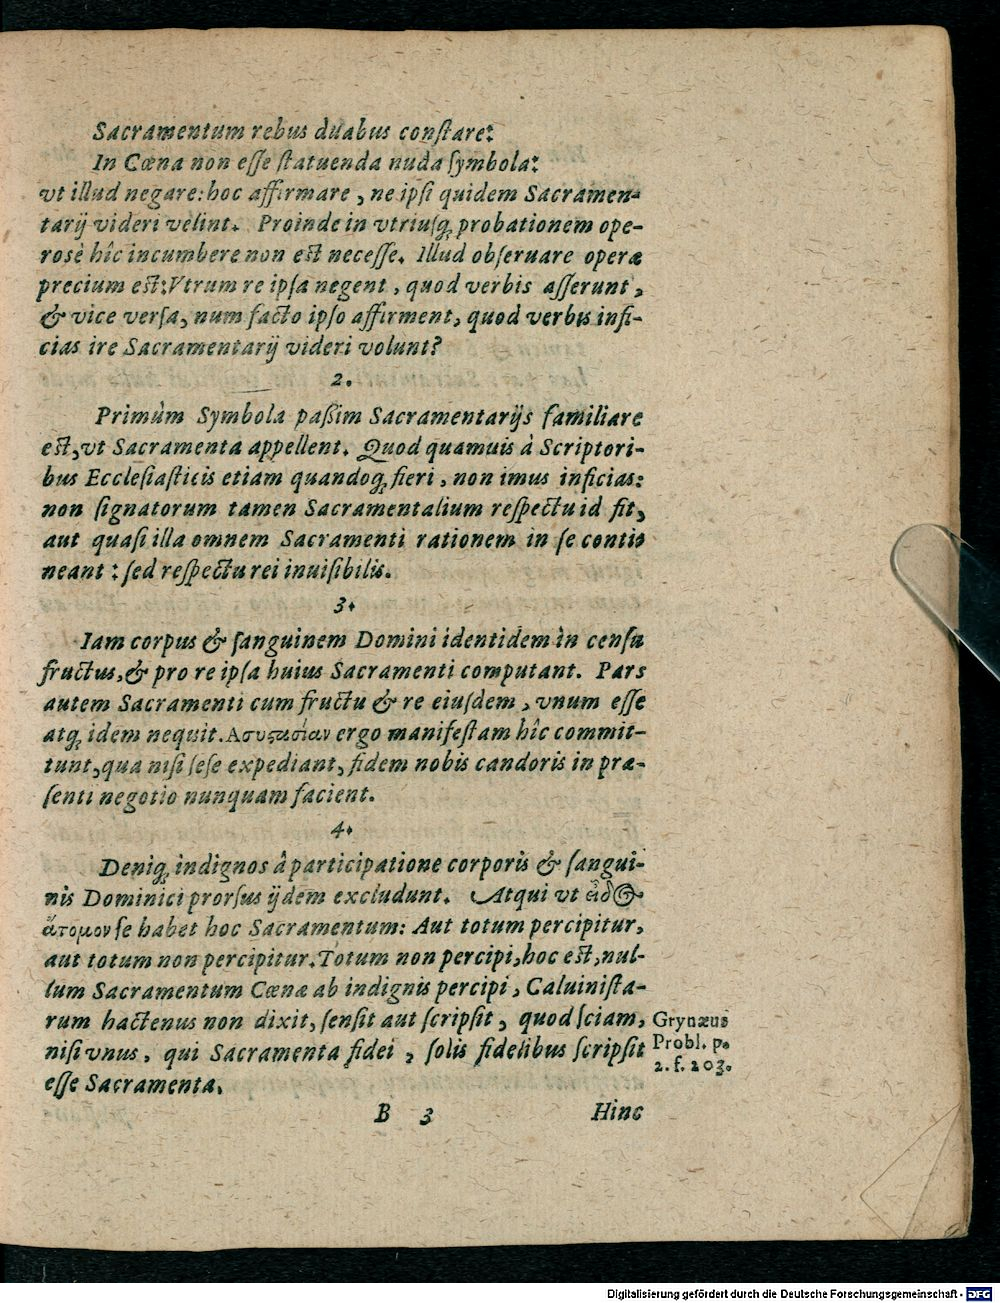 Sacramentum rebus duabus conſtare:
In Cœna non eſſe ſtatuenda nuda ſymbola:
vt illud negare: hoc affirmare, ne ipſi quidem Sacramen-
tarij videri velint. Proinde in vtriuſq; probationem ope-
rosè hîc incumbere non eſt neceſſe. Illud obſeruare operæ
precium eſt: Vtrum re ipſa negent, quod verbis aſſerunt,
& vice verſa, num facto ipſo affirment, quod verbis infi-
cias ire Sacramentarij videri volunt?
2.
Primùm Symbola paßim Sacramentarijs familiare
eſt, vt Sacramenta appellent. Quod quamuis à Scriptori-
bus Eccleſiaſticis etiam quandoq; fieri, non imus inficias:
non ſignatorum tamen Sacramentalium reſpectu id fit,
aut quaſi illa omnem Sacramenti rationem in ſe conti-
neant: ſed reſpectu rei inuiſibilis.
3.
Iam corpus & ſanguinem Domini identidem in cenſu
fructus, & pro re ipſa huius Sacramenti computant. Pars
autem Sacramenti cum fructu & re eiuſdem, vnum eſſe
atq; idem nequit. Ασυϛασίαν ergo manifeſtam hîc commit-
tunt, qua niſi ſeſe expediant, fidem nobis candoris in præ-
ſenti negotio nunquam facient.
4.
Deniq; indignos à participatione corporis & ſangui-
nis Dominici prorſus ijdem excludunt. Atqui vt εἶδος
ἄτομον ſe habet hoc Sacramentum: Aut totum percipitur,
aut totum non percipitur. Totum non percipi, hoc eſt, nul-
lum Sacramentum Cœnæ ab indignis percipi, Caluiniſta-
rum hactenus non dixit, ſenſit aut ſcripſit, quod ſciam,
niſi vnus, qui Sacramenta fidei, ſolis fidelibus ſcripſit
eſſe Sacramenta.
Grynæus
Probl. p.
2. f. 203.
B 3 Hinc
Digitalisierung gefördert durch die Deutsche Forschungsgemeinschaft - DFG